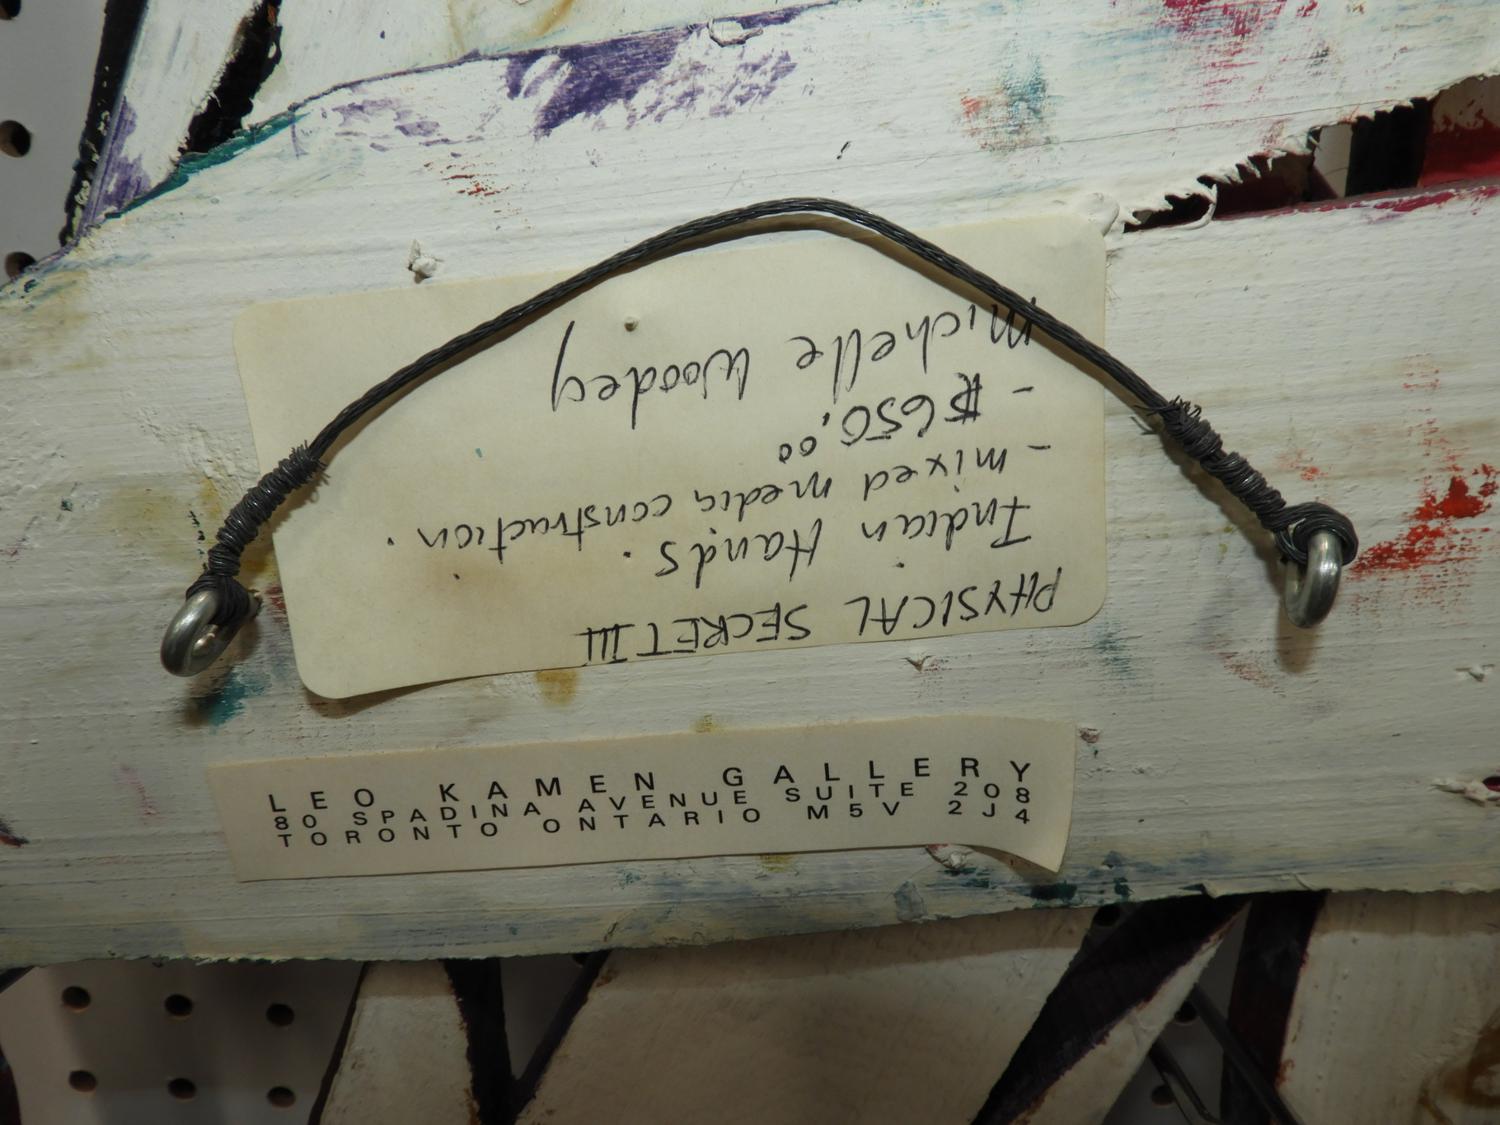 PHYSICAL SECRET III
Indian Hands.
- mixed media construction.
- $650.00
Michelle Woodey
LEO KAMEN GALLERY
80 SPADINA AVENUE SUITE 208
TORONTO ONTARIO M5V 2J4